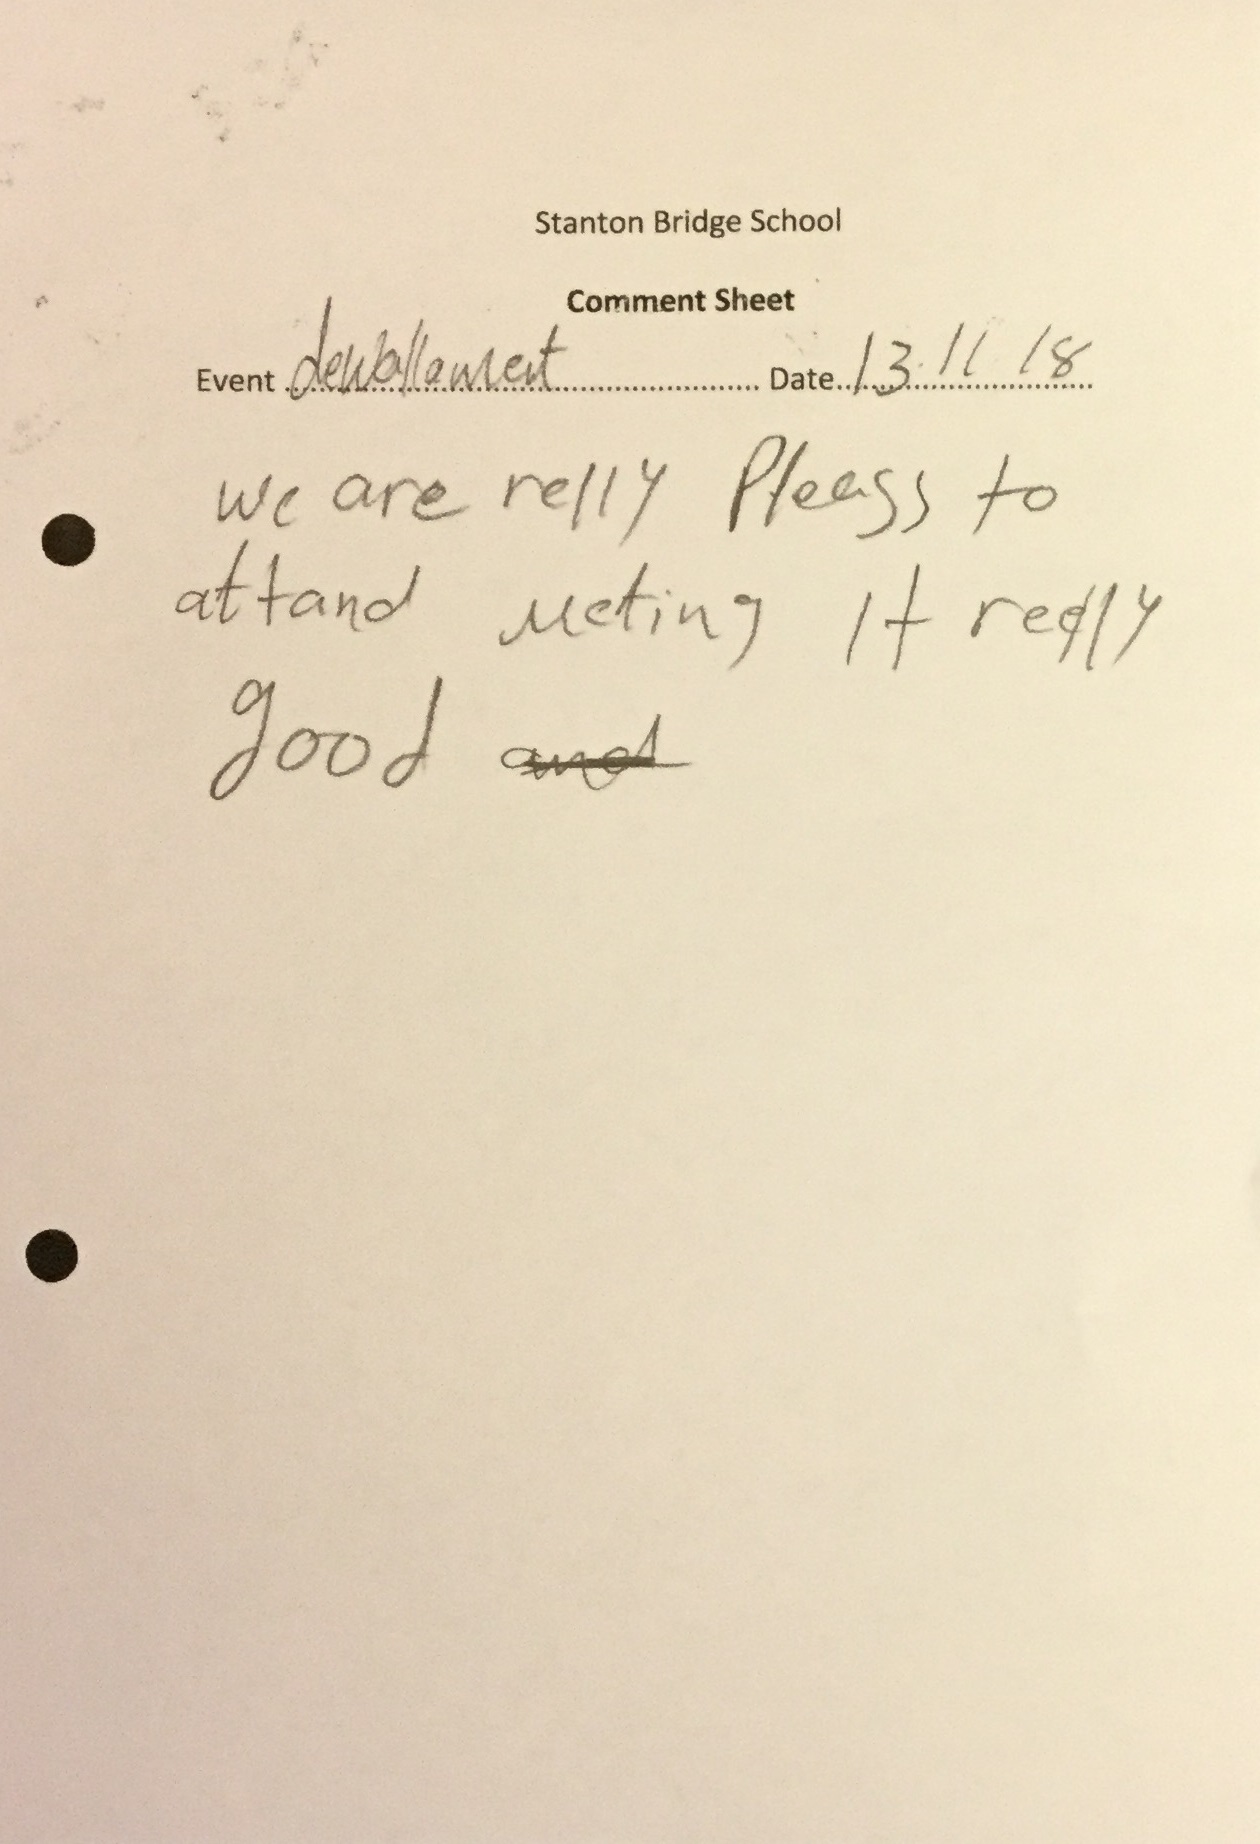 Stanton Bridge School
Comment Sheet
Event ................................ Date 13.11 18
we are relly Pleass to
attand meting It really
good and